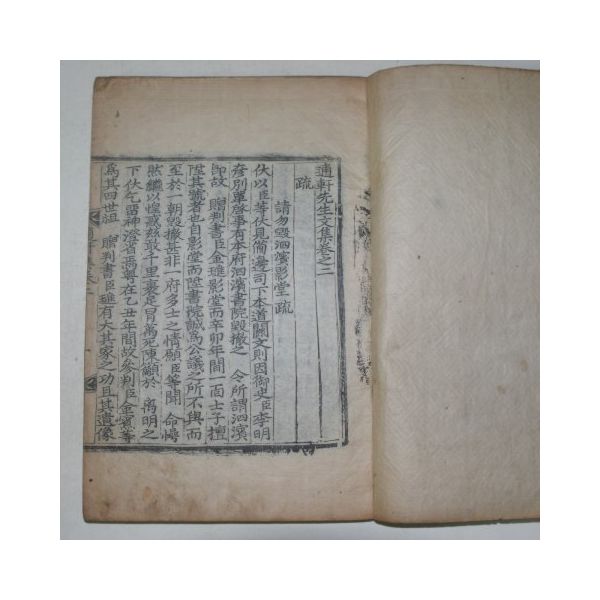 適軒先生文集卷之二
疏
請勿毀泗濱影堂疏
伏以臣等伏見備邊司下本道關文則因御史臣李明
彥別單啓事有本府泗濱書院毀撤之 令所謂泗濱
卽故 贈判書臣金璡影堂而辛卯年間一面士子擅
陞其號者也自影堂而陞書院誠爲公議之所不與而
至於一朝毀撤甚非一府多士之情願臣等聞 命悸
然繼以惶惑玆敢千里裹足冒萬死陳籲於 离明之
下伏乞雷神澄省焉粤在乙丑年間故參判臣金賓等
爲其四世祖 贈判書臣璡有大其家之功且其遺像